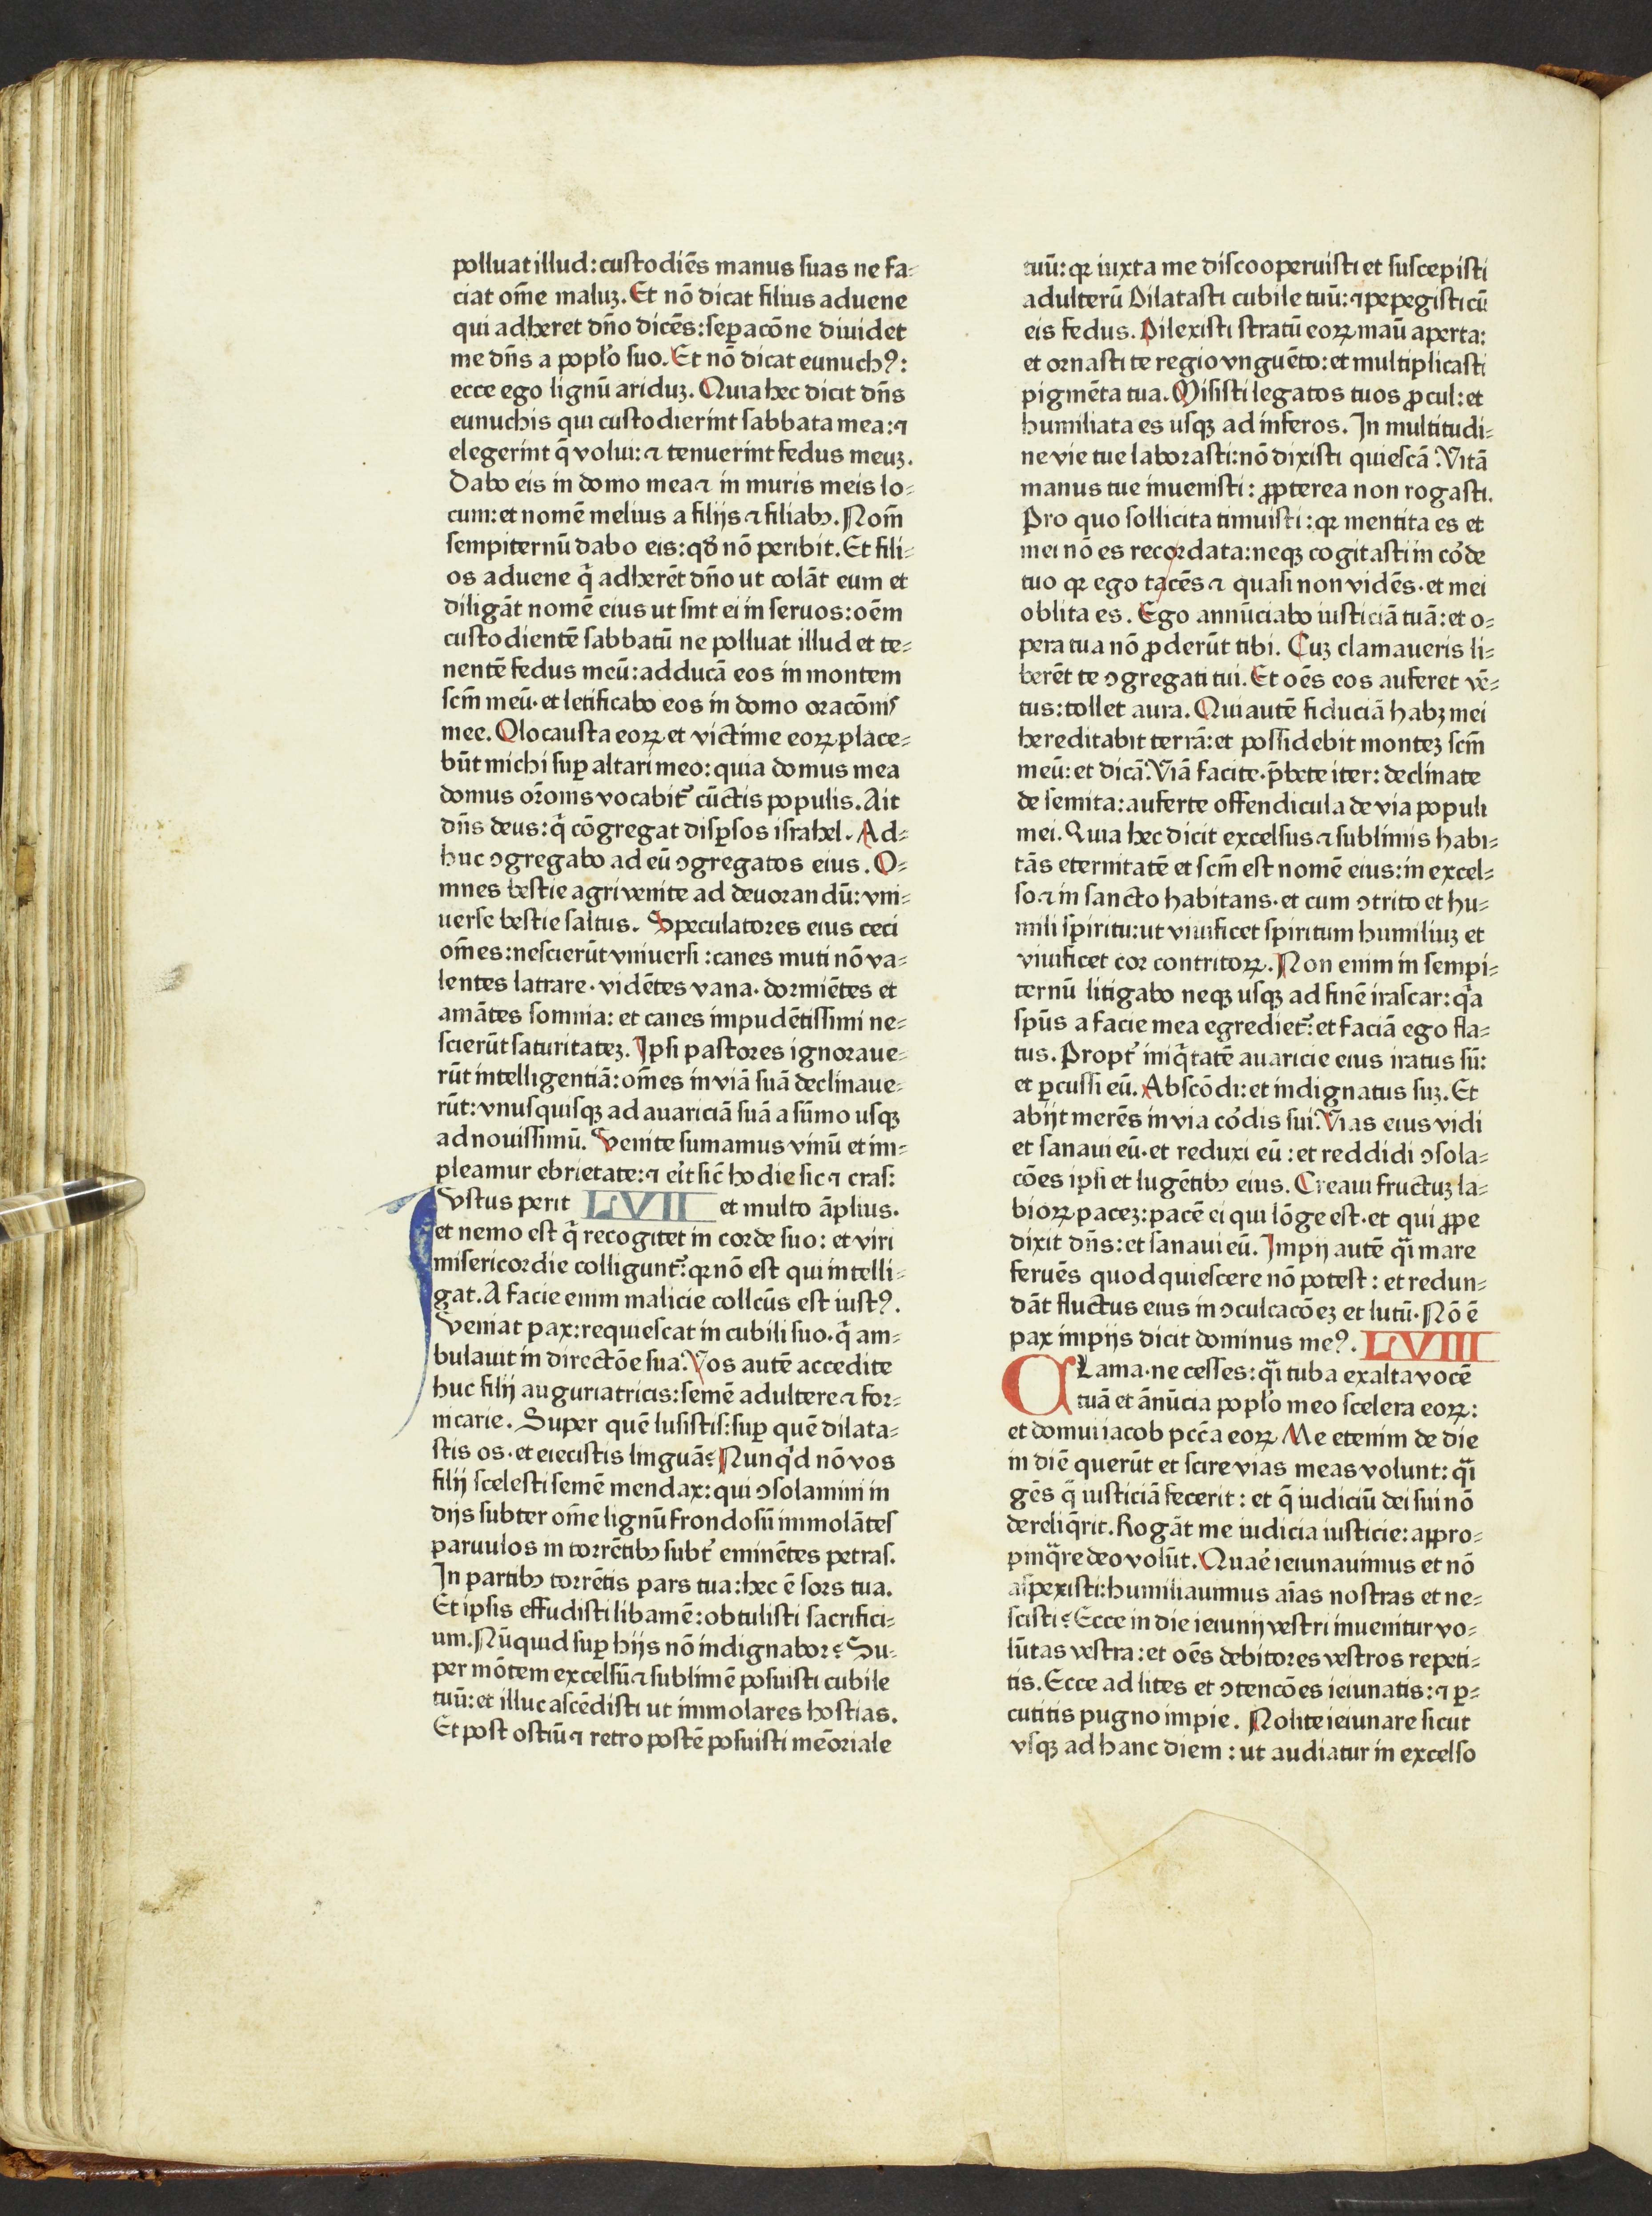 polluat illud: custodiēs manus suas ne fa⸗
ciat om̄e maluꝫ. Et nō dicat filius aduene
qui adheret dn̄o dicēs: seꝑacōne diuidet
me dn̄s a popl'o suo. Et nō dicat eunuchꝰ:
ecce ego lignū ariduꝫ. Quia hec dicit dn̄s
eunuchis qui custodierint sabbata mea: ⁊
elegerint q̄ volui: ⁊ tenuerint fedus meuꝫ.
Dabo eis in domo mea ⁊ in muris meis lo⸗
cum: et nomē melius a filijs ⁊ filiabꝫ. Nom̄
sempiternū dabo eis: qd̄ nō peribit. Et fili⸗
os aduene q̄ adherēt dn̄o ut colāt eum et
diligāt nomē eius ut sint ei in seruos: oēm
custodientē sabbatū ne polluat illud et te⸗
nentē fedus meū: adducā eos in montem
scm̄ meū· et letificabo eos in domo oracōnis
mee. Olocausta eoꝝ et victime eoꝝ place⸗
būt michi suꝑ altari meo: quia domus mea
domus or̄onis vocabit᷑ cūctis populis. Ait
dn̄s deus: q̄ cōgregat disꝑsos israhel. Ad⸗
huc ꝯgregabo ad eū ꝯgregatos eius. O⸗
mnes bestie agri venite ad deuorandū: vni⸗
uerse bestie saltus. Speculatores eius ceci
om̄es: nescierūt vniuersi: canes muti nō va⸗
lentes latrare· vidētes vana· dormiētes et
amātes somnia: et canes impudētissimi ne⸗
scierūt saturitateꝫ. Ipsi pastores ignoraue⸗
rūt intelligentiā: om̄es in viā suā declinaue⸗
rūt: vnusquisqꝫ ad auariciā suā a sūmo usqꝫ
ad nouissimū. Venite sumamus vinū et im⸗
pleamur ebrietate: ⁊ er̄it sic̄ hodie sic ⁊ cras:
Vstus perit LVII et multo āplius.
et nemo est q̄ recogitet in corde suo: et viri
misericordie colligunt᷑: qꝛ nō est qui intelli⸗
gat. A facie enim malicie collcūs est iustꝰ.
Veniat pax: requiescat in cubili suo· q̄ am⸗
bulauit in directōe sua. Vos autē accedite
huc filij auguriatricis: semē adultere ⁊ for⸗
nicarie. Super quē lusistis: suꝑ quē dilata⸗
stis os· et eiecistis linguā? Nunqd̄ nō vos
filij scelesti semē mendax: qui ꝯsolamini in
dijs subter om̄e lignū frondosū immolātes
paruulos in torrētibꝫ subt᷑ eminētes petras.
In partibꝫ torrētis pars tua: hec ē sors tua.
Et ipsis effudisti libamē: obtulisti sacrifici⸗
um. Nūquid suꝑ hijs nō indignabor? Su⸗
per mōtem excelsū ⁊ sublimē posuisti cubile
tuū: et illuc ascēdisti ut immolares hostias.
Et post ostiū ⁊ retro postē posuisti mēoriale
tuū: qꝛ iuxta me discooperuisti et suscepisti
adulterū Dilatasti cubile tuū: ⁊ pepegisti cū
eis fedus. Dilexisti stratū eoꝝ maū aperta:
et ornasti te regio vnguēto: et multiplicasti
pigmēta tua. Misisti legatos tuos ꝓcul: et
humiliata es usqꝫ ad inferos. In multitudi⸗
ne vie tue laborasti: nō dixisti quiescā. Vitā
manus tue inuenisti: ꝓpterea non rogasti.
Pro quo sollicita timuisti: qꝛ mentita es et
mei nō es recordata: neqꝫ cogitasti in co᷑de
tuo qꝛ ego tacēs ⁊ quasi non vidēs· et mei
oblita es. Ego annūciabo iusticiā tuā: et o⸗
pera tua nō ꝓderūt tibi. Cuꝫ clamaueris li⸗
berēt te ꝯgregati tui. Et oēs eos auferet vē⸗
tus: tollet aura. Qui autē fiduciā habꝫ mei
hereditabit terrā: et possidebit monteꝫ scm̄
meū: et dicā. Viā facite· p̄bete iter: declinate
de semita: auferte offendicula de via populi
mei. Quia hec dicit excelsus ⁊ sublimis habi⸗
tās eternitatē et scm̄ est nomē eius: in excel⸗
so ⁊ in sancto habitans· et cum ꝯtrito et hu⸗
mili spiritu: ut viuificet spiritum humiliuꝫ et
viuificet cor contritoꝝ. Non enim in sempi⸗
ternū litigabo neqꝫ usqꝫ ad finē irascar: qͣa
spūs a facie mea egrediet᷑: et faciā ego fla⸗
tus. Propt᷑ iniqͥtatē auaricie eius iratus sū:
et ꝑcussi eū. Abscōdi: et indignatus suꝫ. Et
abijt merēs in via co᷑dis sui. Vias eius vidi
et sanaui eū· et reduxi eū: et reddidi ꝯsola⸗
cōes ipsi et lugētibꝫ eius. Creaui fructuꝫ la⸗
bioꝝ paceꝫ: pacē ei qui lōge est· et qui ꝓpe
dixit dn̄s: et sanaui eū. Impij autē qͣi mare
feruēs quod quiescere nō potest: et redun⸗
dāt fluctus eius in ꝯculcacōeꝫ et lutū. Nō ē
pax impijs dicit dominus meꝰ. LVIII
CLama· ne cesses: qͣi tuba exalta vocē
tuā et ānūcia popl'o meo scelera eoꝝ:
et domui iacob pcc̄a eoꝝ Me etenim de die
in diē querūt et scire vias meas volunt: qͣi
gēs q̄ iusticiā fecerit: et q̄ iudiciū dei sui nō
dereliq̄rit. Rogāt me iudicia iusticie: aꝓpro⸗
pinqͣre deo volūt. Quar̄e ieiunauimus et nō
aspexisti: humiliauimus aīas nostras et ne⸗
scisti? Ecce in die ieiunij vestri inuenitur vo⸗
lūtas vestra: et oēs debitores vestros repeti⸗
tis. Ecce ad lites et ꝯtencōes ieiunatis: ⁊ ꝑ⸗
cutitis pugno impie. Nolite ieiunare sicut
vsqꝫ ad hanc diem: ut audiatur in excelso